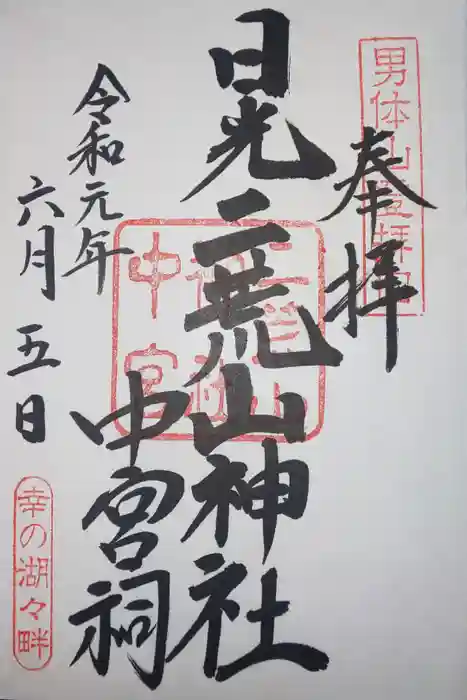 男体山登拝口
奉拝
日光二荒山神社
中宮祠
令和元年
六月五日
幸の湖々畔